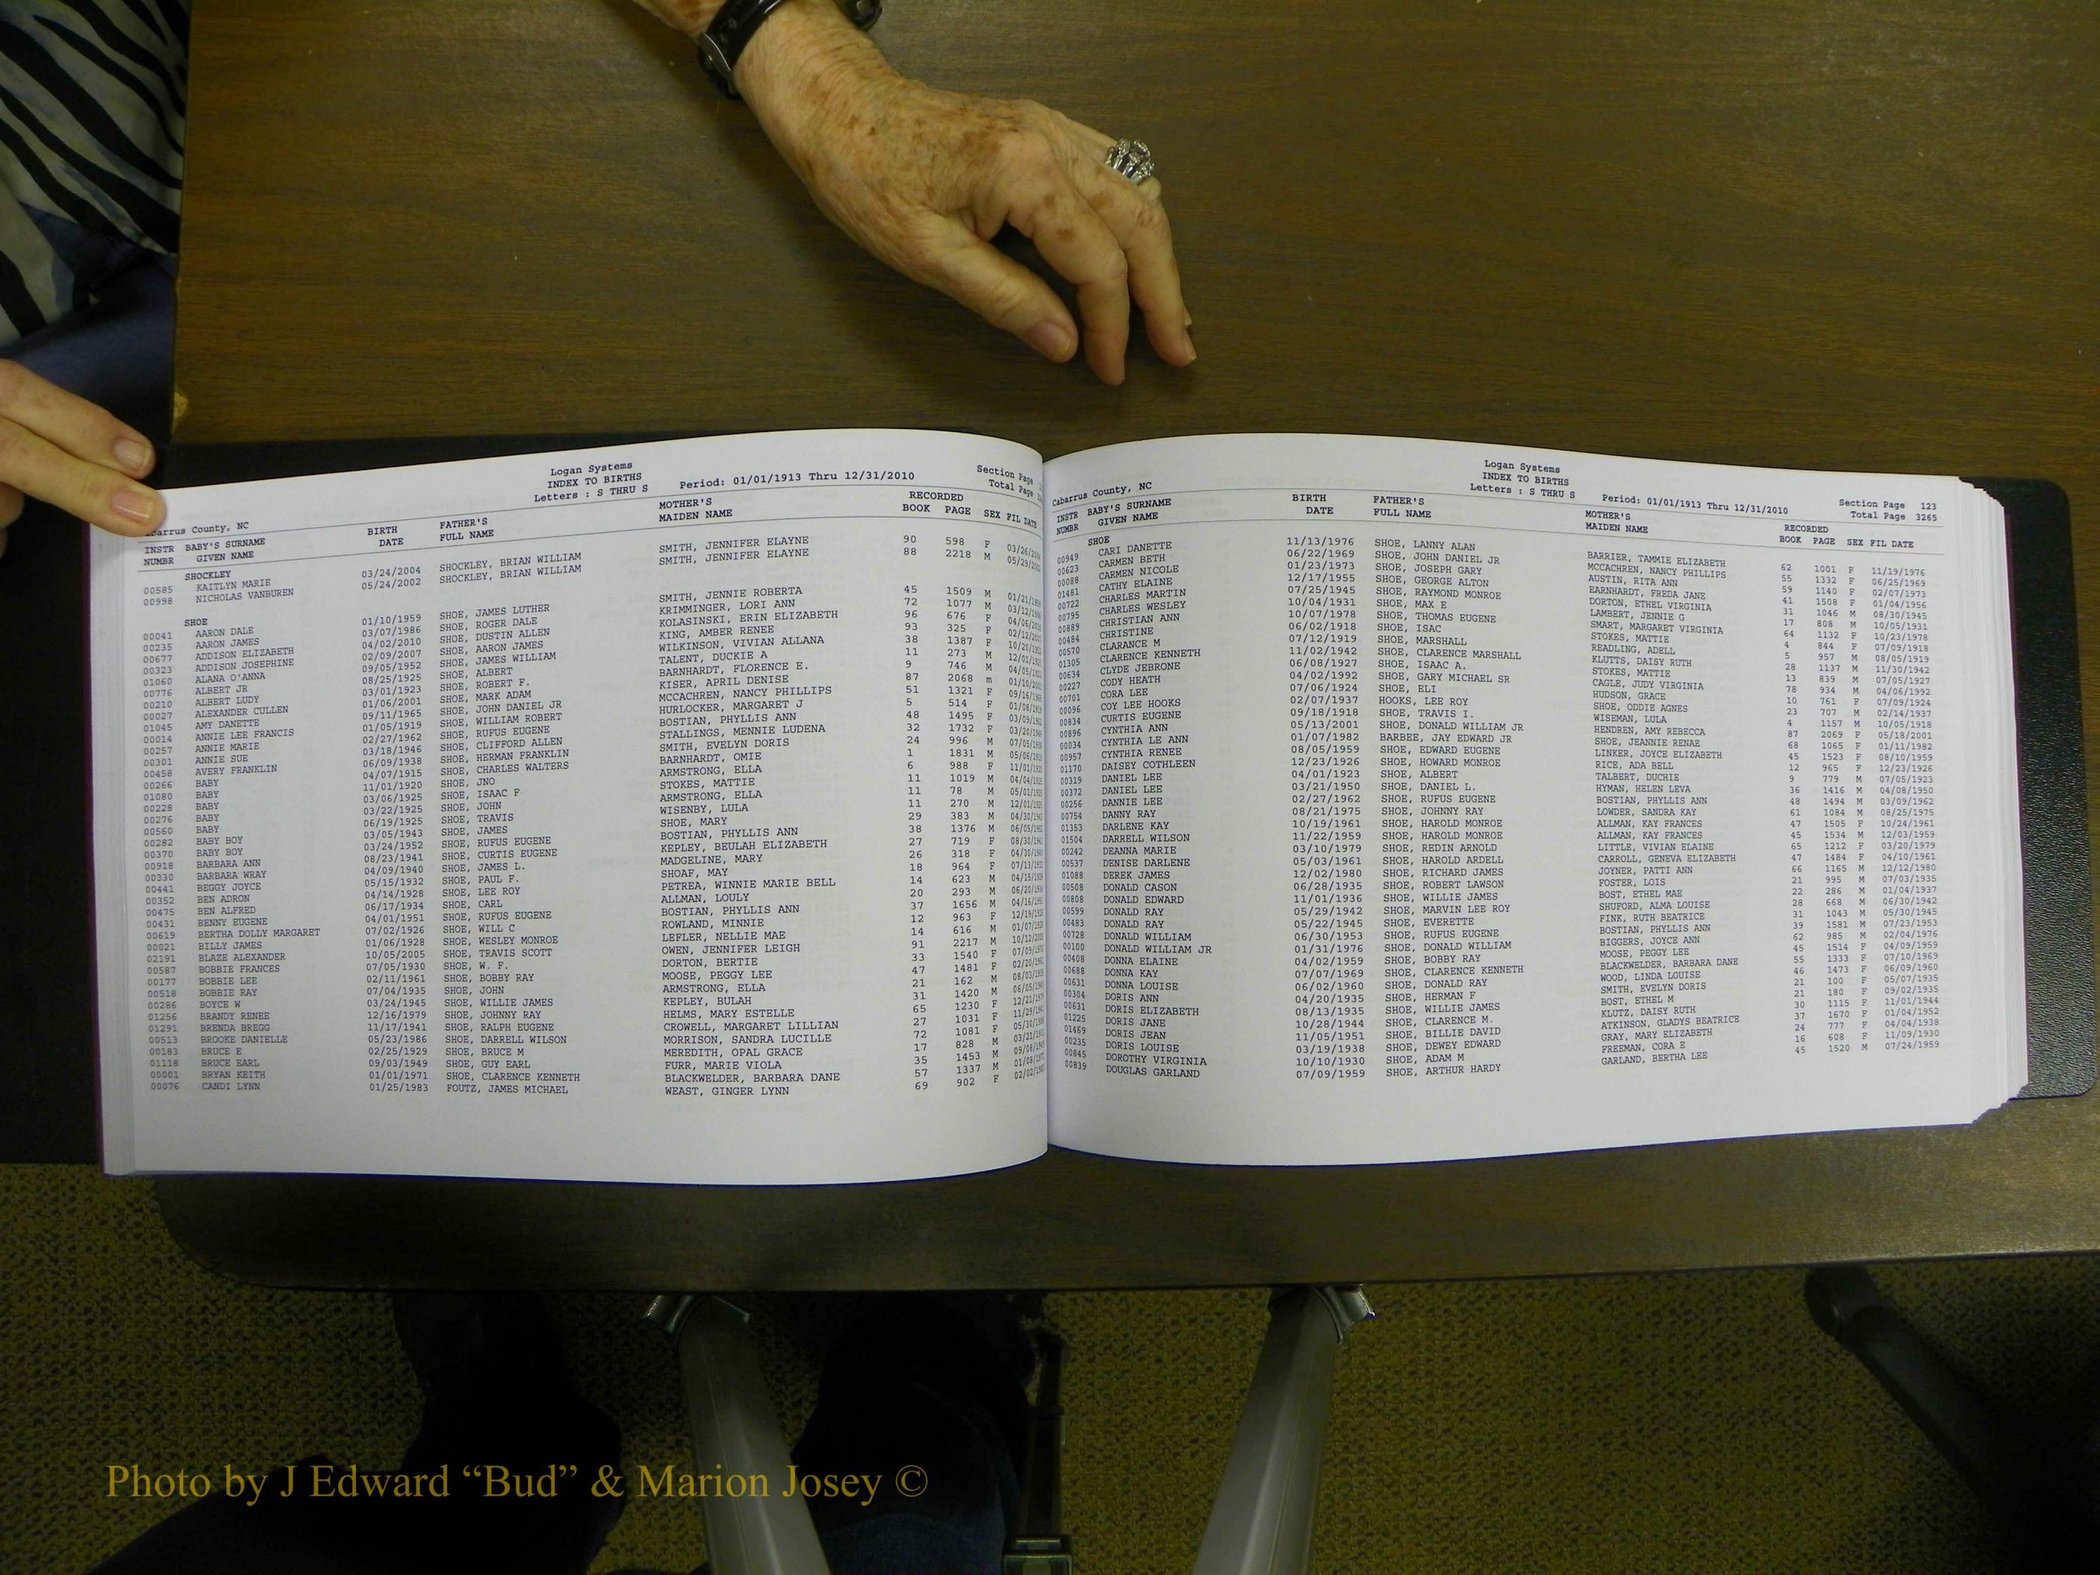 Logan Systems
INDEX TO BIRTHS
Letters : S THRU S Period: 01/01/1913 Thru 12/31/2010
Section Page
Total Page
County, NC
INSTR BABY'S SURNAME BIRTH FATHER'S MOTHER'S RECORDED
NUMBR GIVEN NAME DATE FULL NAME MAIDEN NAME BOOK PAGE SEX FIL DATE
SHOCKLEY
00585 KAITLYN MARIE 03/24/2004 SHOCKLEY, BRIAN WILLIAM SMITH, JENNIFER ELAYNE 90 598 F
00998 NICHOLAS VANBUREN 05/24/2002 SHOCKLEY, BRIAN WILLIAM SMITH, JENNIFER ELAYNE 88 2218 M
SHOE
00041 AARON DALE 01/10/1959 SHOE, JAMES LUTHER SMITH, JENNIE ROBERTA 45 1509 M
00235 AARON JAMES 03/07/1986 SHOE, ROGER DALE KRIMMINGER, LORI ANN 72 1077 M
00677 ADDISON ELIZABETH 04/02/2010 SHOE, DUSTIN ALLEN KOLASINSKI, ERIN ELIZABETH 96 676 F
00323 ADDISON JOSEPHINE 02/09/2007 SHOE, AARON JAMES KING, AMBER RENEE 93 325 F
01060 ALANA O'ANNA 09/05/1952 SHOE, JAMES WILLIAM WILKINSON, VIVIAN ALLANA 38 1387 F
00776 ALBERT JR 08/25/1925 SHOE, ALBERT TALENT, DUCKIE A 11 273 M
00210 ALBERT LUDY 03/01/1923 SHOE, ROBERT F. BARNHARDT, FLORENCE E. 9 746 M
00027 ALEXANDER CULLEN 01/06/2001 SHOE, MARK ADAM KISER, APRIL DENISE 87 2068 m
01045 AMY DANETTE 09/11/1965 SHOE, JOHN DANIEL JR MCCACHREN, NANCY PHILLIPS 51 1321 F
00014 ANNIE LEE FRANCIS 01/05/1919 SHOE, WILLIAM ROBERT HURLOCKER, MARGARET J 5 514 F
00257 ANNIE MARIE 02/27/1962 SHOE, RUFUS EUGENE BOSTIAN, PHYLLIS ANN 48 1495 F
00301 ANNIE SUE 03/18/1946 SHOE, CLIFFORD ALLEN STALLINGS, MENNIE LUDENA 32 1732 F
00458 AVERY FRANKLIN 06/09/1938 SHOE, HERMAN FRANKLIN SMITH, EVELYN DORIS 24 996 M
00266 BABY 04/07/1915 SHOE, CHARLES WALTERS BARNHARDT, OMIE 1 1831 M
01080 BABY 11/01/1920 SHOE, JNO ARMSTRONG, ELLA 6 988 F
00228 BABY 03/06/1925 SHOE, ISAAC F STOKES, MATTIE 11 1019 M
00276 BABY 03/22/1925 SHOE, JOHN ARMSTRONG, ELLA 11 78 M
00560 BABY 06/19/1925 SHOE, TRAVIS WISENBY, LULA 11 270 M
00282 BABY BOY 03/05/1943 SHOE, JAMES SHOE, MARY 29 383 M
00370 BABY BOY 03/24/1952 SHOE, RUFUS EUGENE BOSTIAN, PHYLLIS ANN 38 1376 M
00918 BARBARA ANN 08/23/1941 SHOE, CURTIS EUGENE KEPLEY, BEULAH ELIZABETH 27 719 F
00330 BARBARA WRAY 04/09/1940 SHOE, JAMES L. MADGELINE, MARY 26 318 F
00441 BEGGY JOYCE 05/15/1932 SHOE, PAUL F. SHOAF, MAY 18 964 F
00352 BEN ADRON 04/14/1928 SHOE, LEE ROY PETREA, WINNIE MARIE BELL 14 623 M
00475 BEN ALFRED 06/17/1934 SHOE, CARL ALLMAN, LOULY 20 293 M
00431 BENNY EUGENE 04/01/1951 SHOE, RUFUS EUGENE BOSTIAN, PHYLLIS ANN 37 1656 M
00619 BERTHA DOLLY MARGARET 07/02/1926 SHOE, WILL C ROWLAND, MINNIE 12 963 F
00021 BILLY JAMES 01/06/1928 SHOE, WESLEY MONROE LEFLER, NELLIE MAE 14 616 M
02191 BLAZE ALEXANDER 10/05/2005 SHOE, TRAVIS SCOTT OWEN, JENNIFER LEIGH 91 2217 M
00587 BOBBIE FRANCES 07/05/1930 SHOE, W. F. DORTON, BERTIE 33 1540 F
00177 BOBBIE LEE 02/11/1961 SHOE, BOBBY RAY MOOSE, PEGGY LEE 47 1481 F
00518 BOBBIE RAY 07/04/1935 SHOE, JOHN ARMSTRONG, ELLA 21 162 M
00286 BOYCE W 03/24/1945 SHOE, WILLIE JAMES KEPLEY, BULAH 31 1420 M
01256 BRANDY RENEE 12/16/1979 SHOE, JOHNNY RAY HELMS, MARY ESTELLE 65 1230 F
01291 BRENDA BREGG 11/17/1941 SHOE, RALPH EUGENE CROWELL, MARGARET LILLIAN 27 1031 F
00513 BROOKE DANIELLE 05/23/1986 SHOE, DARRELL WILSON MORRISON, SANDRA LUCILLE 72 1081 F
00183 BRUCE E 02/25/1929 SHOE, BRUCE M MEREDITH, OPAL GRACE 17 828 M
01118 BRUCE EARL 09/03/1949 SHOE, GUY EARL FURR, MARIE VIOLA 35 1453 M
00001 BRYAN KEITH 01/01/1971 SHOE, CLARENCE KENNETH BLACKWELDER, BARBARA DANE 57 1337 M
00076 CANDI LYNN 01/25/1983 FOUTZ, JAMES MICHAEL WEAST, GINGER LYNN 69 902 F
Logan Systems
INDEX TO BIRTHS
Letters : S THRU S Period: 01/01/1913 Thru 12/31/2010
Section Page 123
Total Page 3265
Cabarrus County, NC
INSTR BABY'S SURNAME BIRTH FATHER'S MOTHER'S RECORDED
NUMBR GIVEN NAME DATE FULL NAME MAIDEN NAME BOOK PAGE SEX FIL DATE
SHOE
00949 CARI DANETTE 11/13/1976 SHOE, LANNY ALAN BARRIER, TAMMIE ELIZABETH 62 1001 F 11/19/1976
00623 CARMEN BETH 06/22/1969 SHOE, JOHN DANIEL JR MCCACHREN, NANCY PHILLIPS 55 1332 F 06/25/1969
00088 CARMEN NICOLE 01/23/1973 SHOE, JOSEPH GARY AUSTIN, RITA ANN 59 1140 F 02/07/1973
01481 CATHY ELAINE 12/17/1955 SHOE, GEORGE ALTON EARNHARDT, FREDA JANE 41 1508 F 01/04/1956
00722 CHARLES MARTIN 07/25/1945 SHOE, RAYMOND MONROE DORTON, ETHEL VIRGINIA 31 1046 M 08/30/1945
00795 CHARLES WESLEY 10/04/1931 SHOE, MAX E LAMBERT, JENNIE G 17 808 M 10/05/1931
00889 CHRISTIAN ANN 10/07/1978 SHOE, THOMAS EUGENE SMART, MARGARET VIRGINIA 64 1132 F 10/23/1978
00484 CHRISTINE 06/02/1918 SHOE, ISAC STOKES, MATTIE 4 844 F 07/09/1918
00570 CLARANCE M 07/12/1919 SHOE, MARSHALL READLING, ADELL 5 957 M 08/05/1919
01305 CLARENCE KENNETH 11/02/1942 SHOE, CLARENCE MARSHALL KLUTTS, DAISY RUTH 28 1137 M 11/30/1942
00634 CLYDE JEBRONE 06/08/1927 SHOE, ISAAC A. STOKES, MATTIE 13 839 M 07/05/1927
00227 CODY HEATH 04/02/1992 SHOE, GARY MICHAEL SR CAGLE, JUDY VIRGINIA 78 934 M 04/06/1992
00701 CORA LEE 07/06/1924 SHOE, ELI HUDSON, GRACE 10 761 F 07/09/1924
00096 COY LEE HOOKS 02/07/1937 HOOKS, LEE ROY SHOE, ODDIE AGNES 23 707 M 02/14/1937
00834 CURTIS EUGENE 09/18/1918 SHOE, TRAVIS I. WISEMAN, LULA 4 1157 M 10/05/1918
00896 CYNTHIA ANN 05/13/2001 SHOE, DONALD WILLIAM JR HENDREN, AMY REBECCA 87 2069 F 05/18/2001
00034 CYNTHIA LE ANN 01/07/1982 BARBEE, JAY EDWARD JR SHOE, JEANNIE RENAE 68 1065 F 01/11/1982
00957 CYNTHIA RENEE 08/05/1959 SHOE, EDWARD EUGENE LINKER, JOYCE ELIZABETH 45 1523 F 08/10/1959
01170 DAISEY COTHLEEN 12/23/1926 SHOE, HOWARD MONROE RICE, ADA BELL 12 965 F 12/23/1926
00319 DANIEL LEE 04/01/1923 SHOE, ALBERT TALBERT, DUCHIE 9 779 M 07/05/1923
00372 DANIEL LEE 03/21/1950 SHOE, DANIEL L. HYMAN, HELEN LEVA 36 1416 M 04/08/1950
00256 DANNIE LEE 02/27/1962 SHOE, RUFUS EUGENE BOSTIAN, PHYLLIS ANN 48 1494 M 03/09/1962
00754 DANNY RAY 08/21/1975 SHOE, JOHNNY RAY LOWDER, SANDRA KAY 61 1084 M 08/25/1975
01353 DARLENE KAY 10/19/1961 SHOE, HAROLD MONROE ALLMAN, KAY FRANCES 47 1505 F 10/24/1961
01504 DARRELL WILSON 11/22/1959 SHOE, HAROLD MONROE ALLMAN, KAY FRANCES 45 1534 M 12/03/1959
00242 DEANNA MARIE 03/10/1979 SHOE, REDIN ARNOLD LITTLE, VIVIAN ELAINE 65 1212 F 03/20/1979
00537 DENISE DARLENE 05/03/1961 SHOE, HAROLD ARDELL CARROLL, GENEVA ELIZABETH 47 1484 F 04/10/1961
01088 DEREK JAMES 12/02/1980 SHOE, RICHARD JAMES JOYNER, PATTI ANN 66 1165 M 12/12/1980
00508 DONALD CASON 06/28/1935 SHOE, ROBERT LAWSON FOSTER, LOIS 21 995 M 07/03/1935
00808 DONALD EDWARD 11/01/1936 SHOE, WILLIE JAMES BOST, ETHEL MAE 22 286 M 01/04/1937
00599 DONALD RAY 05/29/1942 SHOE, MARVIN LEE ROY SHUFORD, ALMA LOUISE 28 668 M 06/30/1942
00483 DONALD RAY 05/22/1945 SHOE, EVERETTE FINK, RUTH BEATRICE 31 1043 M 05/30/1945
00728 DONALD WILLIAM 06/30/1953 SHOE, RUFUS EUGENE BOSTIAN, PHYLLIS ANN 39 1581 M 07/23/1953
00100 DONALD WILLIAM JR 01/31/1976 SHOE, DONALD WILLIAM BIGGERS, JOYCE ANN 62 985 M 02/04/1976
00408 DONNA ELAINE 04/02/1959 SHOE, BOBBY RAY MOOSE, PEGGY LEE 45 1514 F 04/09/1959
00688 DONNA KAY 07/07/1969 SHOE, CLARENCE KENNETH BLACKWELDER, BARBARA DANE 55 1333 F 07/10/1969
00631 DONNA LOUISE 06/02/1960 SHOE, DONALD RAY WOOD, LINDA LOUISE 46 1473 F 06/09/1960
00304 DORIS ANN 04/20/1935 SHOE, HERMAN F SMITH, EVELYN DORIS 21 100 F 05/07/1935
00631 DORIS ELIZABETH 08/13/1935 SHOE, WILLIE JAMES BOST, ETHEL M 21 180 F 09/02/1935
01225 DORIS JANE 10/28/1944 SHOE, CLARENCE M. KLUTZ, DAISY RUTH 30 1115 F 11/01/1944
01469 DORIS JEAN 11/05/1951 SHOE, BILLIE DAVID ATKINSON, GLADYS BEATRICE 37 1670 F 01/04/1952
00235 DORIS LOUISE 03/19/1938 SHOE, DEWEY EDWARD GRAY, MARY ELIZABETH 24 777 F 04/04/1938
00845 DOROTHY VIRGINIA 10/10/1930 SHOE, ADAM M FREEMAN, CORA E 16 608 F 11/09/1930
00839 DOUGLAS GARLAND 07/09/1959 SHOE, ARTHUR HARDY GARLAND, BERTHA LEE 45 1520 M 07/24/1959
Photo by J Edward “Bud” & Marion Josey ©